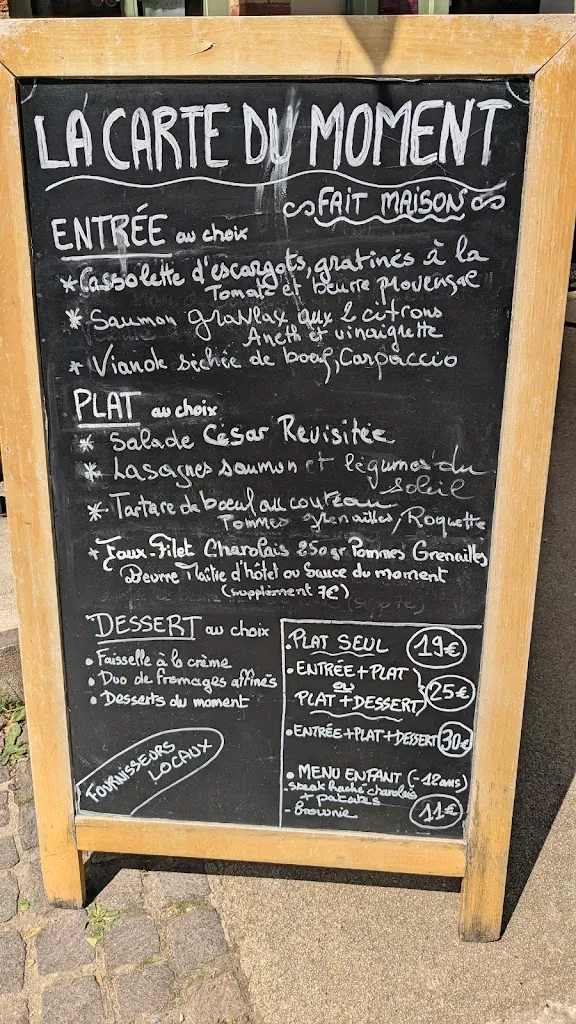 LA CARTE DU MOMENT
FAIT MAISON
ENTRÉE au choix
* Cassolette d'escargots, gratinés à la
Tomate et beurre provençal
* Saumon gravlax aux 2 citrons
Aneth et vinaigrette
* Viande séchée de boeuf, Carpaccio
PLAT au choix
* Salade César Revisitée
* Lasagnes saumon et légumes du
soleil
* Tartare de boeuf au couteau
Pommes grenailles, Roquette
* Faux-Filet Charolais 250gr Pommes Grenailles
Beurre Maître d'hôtel ou Sauce du moment
(supplément 7€)
DESSERT au choix
• Faisselle à la crème
• Duo de fromages affinés
• Desserts du moment
FOURNISSEURS
LOCAUX
• PLAT SEUL 19€
• ENTRÉE + PLAT
ou
PLAT + DESSERT 25€
• ENTRÉE + PLAT + DESSERT 30€
• MENU ENFANT (-12 ans)
steak haché charolais
+ patates
- Brownie 11€